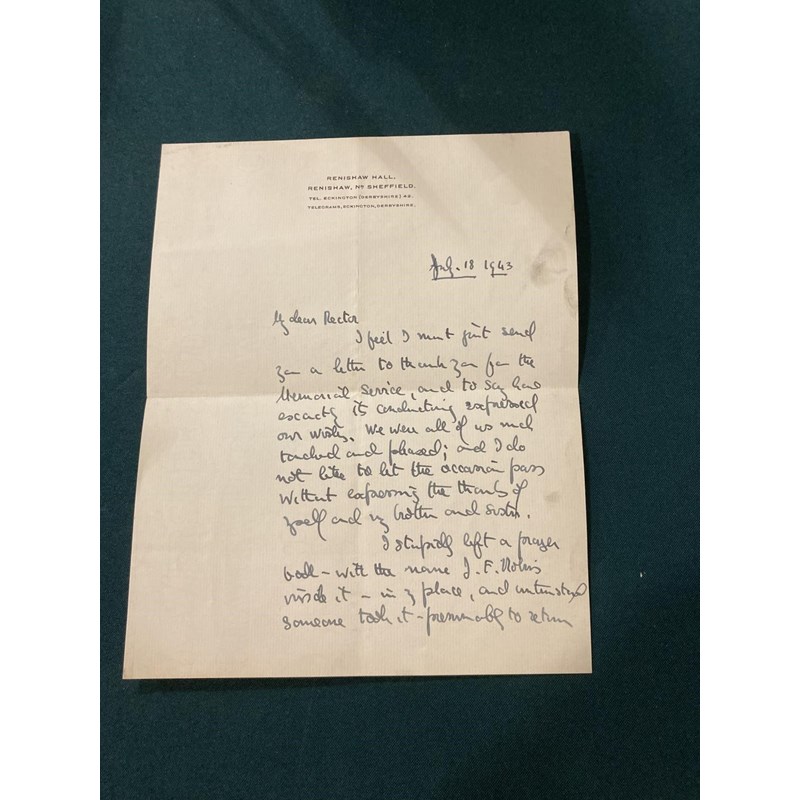 RENISHAW HALL,
RENISHAW, Nr SHEFFIELD.
TEL. ECKINGTON (DERBYSHIRE) 42.
TELEGRAMS, ECKINGTON, DERBYSHIRE.
July. 18 1943
My dear Rector
I feel I must just send
you a letter to thank you for the
Memorial Service, and to say how
exactly its conducting expressed
our wishes. We were all of us much
touched and pleased; and I do
not like to let the occasion pass
without expressing the thanks of
myself and my brother and sister.
I stupidly left a prayer
book - with the name J. F.
inside it - in my place, and
someone took it - presumably to return